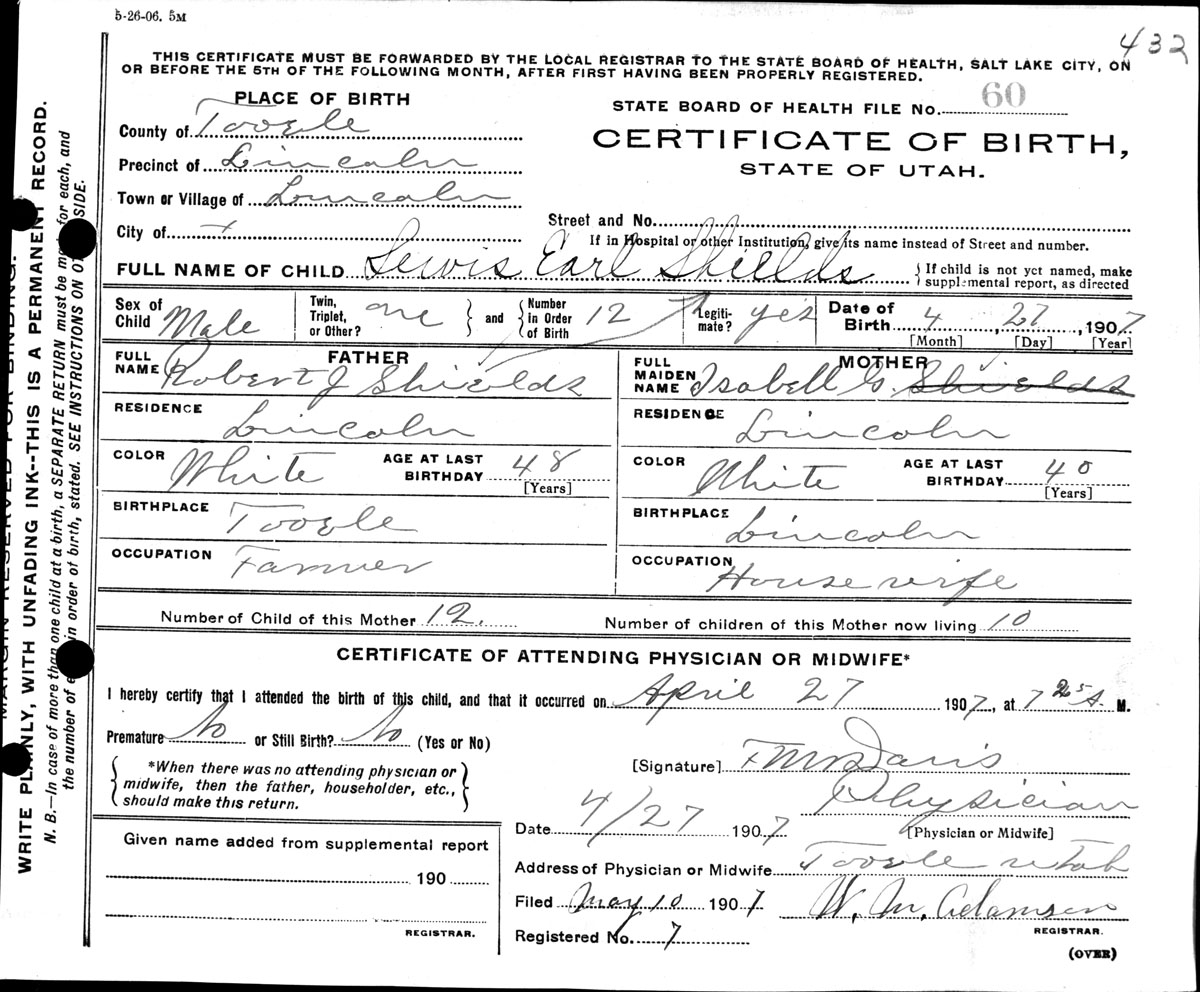 5-26-06. 5M
432
THIS CERTIFICATE MUST BE FORWARDED BY THE LOCAL REGISTRAR TO THE STATE BOARD OF HEALTH, SALT LAKE CITY, ON
OR BEFORE THE 5TH OF THE FOLLOWING MONTH, AFTER FIRST HAVING BEEN PROPERLY REGISTERED.
PLACE OF BIRTH
STATE BOARD OF HEALTH FILE No. 60
County of Tooele
CERTIFICATE OF BIRTH,
Precinct of Lincoln
STATE OF UTAH.
Town or Village of Lincoln
Street and No.
City of
If in Hospital or other Institution, give its name instead of Street and number.
FULL NAME OF CHILD Lewis Earl Shields
{ If child is not yet named, make
supplemental report, as directed
Sex of Child Male
Twin, Triplet, or Other? one } and { Number in Order of Birth 12
Legitimate? yes
Date of Birth 4, 27, 1907
[Month] [Day] [Year]
FATHER
MOTHER
FULL NAME Robert J Shields
FULL MAIDEN NAME Isabell G. Shields
RESIDENCE Lincoln
RESIDENCE Lincoln
COLOR White AGE AT LAST BIRTHDAY 48
[Years]
COLOR White AGE AT LAST BIRTHDAY 40
[Years]
BIRTHPLACE Tooele
BIRTHPLACE Lincoln
OCCUPATION Farmer
OCCUPATION Housewife
Number of Child of this Mother 12. Number of children of this Mother now living 10
CERTIFICATE OF ATTENDING PHYSICIAN OR MIDWIFE*
I hereby certify that I attended the birth of this child, and that it occurred on April 27 1907, at 7 25 A. M.
Premature No or Still Birth? No (Yes or No)
{ *When there was no attending physician or
midwife, then the father, householder, etc.,
should make this return. }
[Signature] F M Davis
Physician
Date 4/27 1907
[Physician or Midwife]
Given name added from supplemental report
190
REGISTRAR.
Address of Physician or Midwife Tooele Utah
Filed May 10 1907 W. M. Adamson
REGISTRAR.
Registered No. 7
(OVER)
MARGIN RESERVED FOR BINDING.
WRITE PLAINLY, WITH UNFADING INK--THIS IS A PERMANENT RECORD.
N. B.—In case of more than one child at a birth, a SEPARATE RETURN must be for each, and
the number of in order of birth, stated. SEE INSTRUCTIONS ON SIDE.